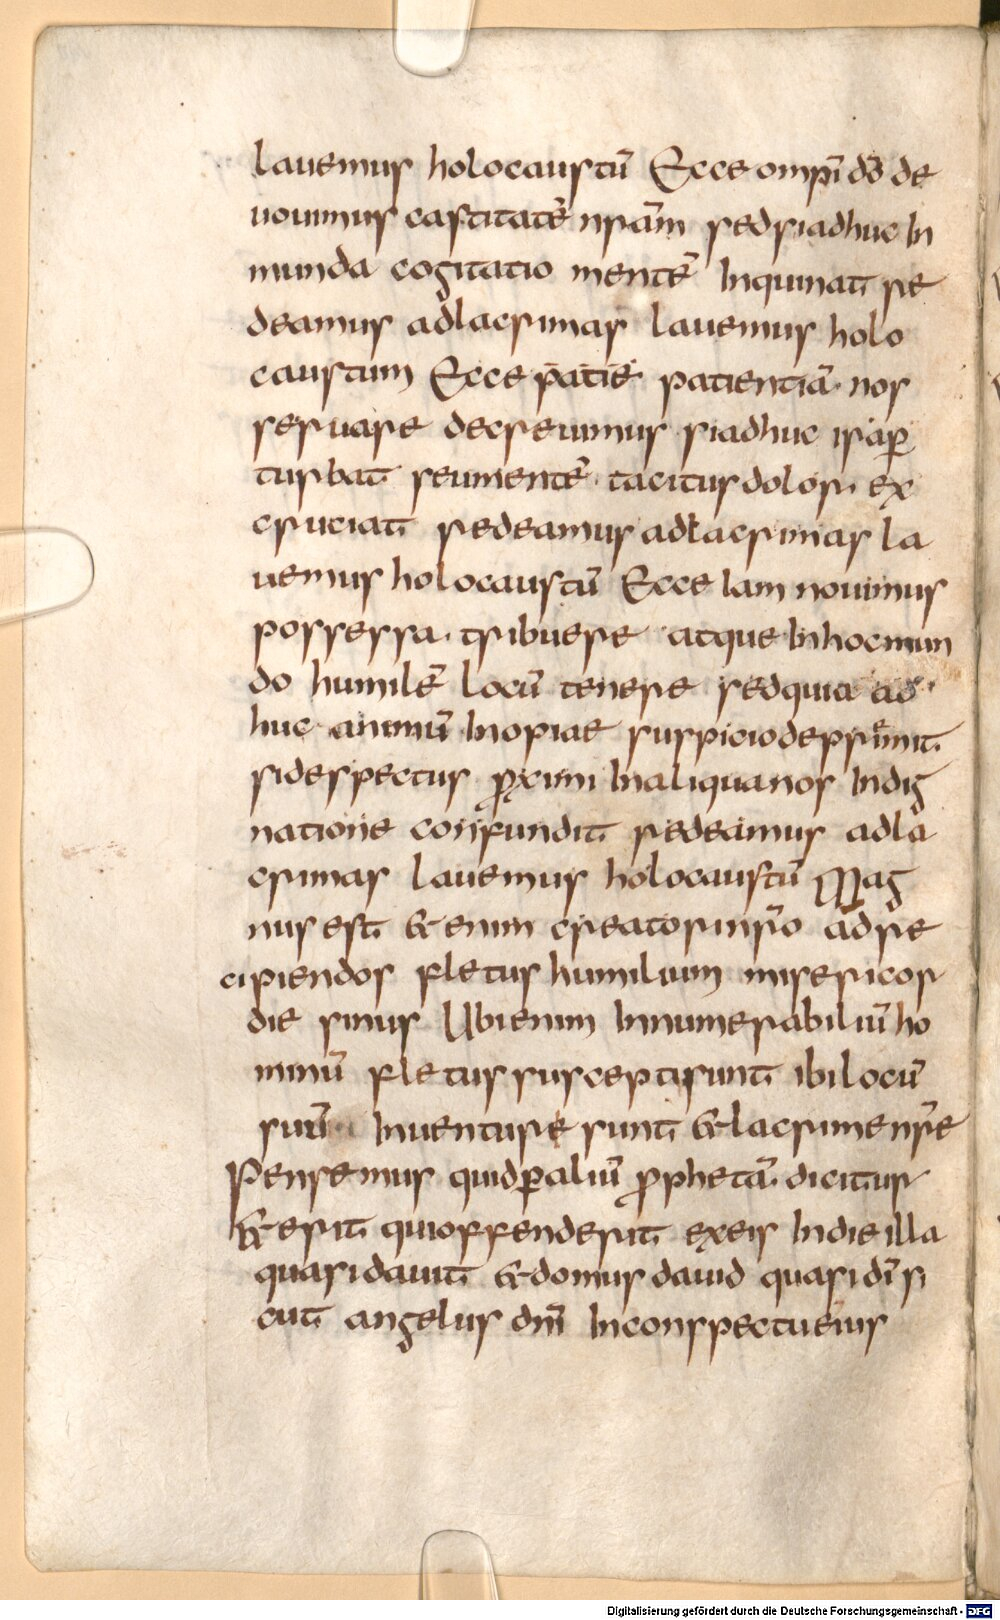 lauemus holocaustū Ecce omp̄i dō de
uouimus castitatē nr̄am sed si adhuc In
munda cogitatio mentē Inquinat se
deamus ad lacrimas lauemus holo
caustum Ecce patiē patientiā· nos
seruare decreuimus si adhuc ira ꝑ
turbat seu mentē· tacitus dolor· ex
cruciat sedeamus ad lacrimas la
uemus holocaustū Ecce Iam nouimus
possessa· tribuere atque In hoc mun
do humilē locū tenere sed quia ad
huc animū Inopiae suspicio depremit
si despectus ꝓximi In aliqua nos Indig
natione confundit sedeamus ad la
crimas lauemus holocaustū Mag
nus est & enim creator nr̄o ad re
cipiendos fletus humilium misericor
die sinus Ubi enim Innumerabiliū ho
minū fletus suscepti sunt ibi locū
suū Inuenture sunt & lacrime nr̄e
Pensemus quid ꝑ aliū ꝓphetā· dicitur
& erit qui offenderit ex eis In die illa
quasi dauit & domus dauid quasi dī si
cut angelus dn̄i In conspectu eius
Digitalisierung gefördert durch die Deutsche Forschungsgemeinschaft - DFG